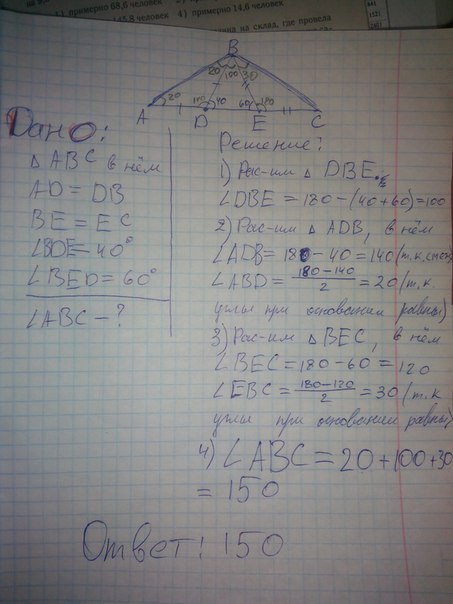 1) примерно 68,6 человек
145,8 человек 4) примерно 14,6 человек
на склад, где провела
B
20 100 30
20 140 40 60 120
A D E C
Дано:
△ ABC в нём
AD = DB
BE = EC
∠BDE = 40°
∠BED = 60°
∠ABC — ?
Решение:
1) Рас-им △ DBE.
∠DBE = 180 – (40+60)=100
2) Рас-им △ ADB, в нём
∠ADB = 180 – 40 = 140 (т.к. смеж
∠ABD = 180-140/2 = 20 (т.к.
углы при основании равны)
3) Рас-им △ BEC, в нём
∠BEC = 180 – 60 = 120
∠EBC = 180-120/2 = 30 (т.к
углы при основании равны)
4) ∠ABC = 20+100+30
= 150
Ответ: 150